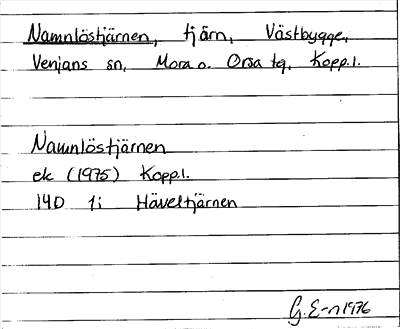 Namnlöstjärnen, tjärn, Västbygge,
Venjans sn, Mora o. Orsa tg, Kopp.l.
Namnlöstjärnen
ek (1975) Kopp.l.
14D 1i Häveltjärnen
G. E-n 1976